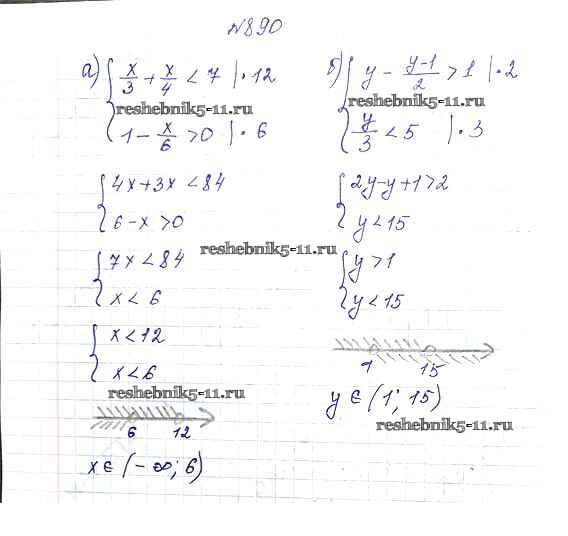 №890
а) { x/3 + x/4 < 7 |·12
reshebnik5-11.ru
1 - x/6 > 0 |·6
{ 4x+3x<84
6-x>0
{ 7x<84
x<6
{ x<12
x<6
reshebnik5-11.ru
6 12
x∈(-∞; 6)
б) { y - (y-1)/2 > 1 |·2
reshebnik5-11.ru
y/3 < 5 |·3
{ 2y-y+1>2
y<15
reshebnik5-11.ru
{ y>1
y<15
1 15
y∈(1; 15)
reshebnik5-11.ru